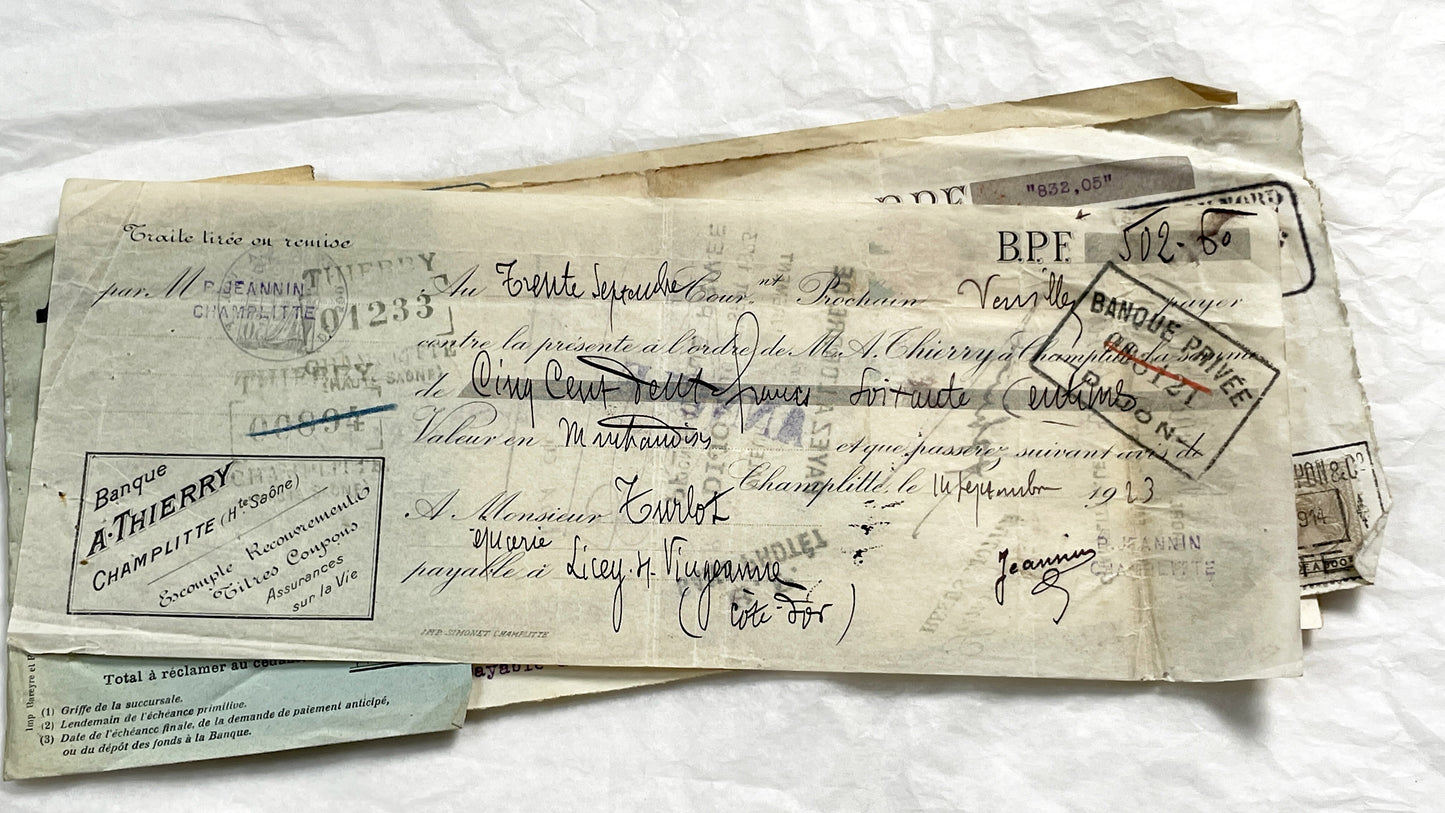 "832,05"
B.P.F.
Traite tirée ou remise
B.P.F. 502-60
par M P. JEANNIN
CHAMPLITTE
THIERRY
01233
Au Trente Septembre Cour.nt Prochain Veuillez payer
contre la présente à l'ordre de M. A. Thierry à Champlitte la somme
de Cinq Cent deux francs Soixante Centimes
THIERRY
(HAUTE SAÔNE)
00894
CHAMPLITTE
BANQUE PRIVÉE
000121
DIJON
Valeur en Marchandises et que passerez suivant avis de
Champlitte, le 14 Septembre 1923
Banque
A. THIERRY
CHAMPLITTE (Hte Saône)
Escompte Recouvrements
Titres Coupons
Assurances
sur la Vie
A Monsieur Turlot
épicerie
payable à Licey-s/-Vingeanne
(Côte-d'or)
Jeannin
P. JEANNIN
CHAMPLITTE
IMP. SIMONET CHAMPLITTE
1914
Total à réclamer au
(1) Griffe de la succursale.
(2) Lendemain de l'échéance primitive.
(3) Date de l'échéance finale, de la demande de paiement anticipé,
ou du dépôt des fonds à la Banque.